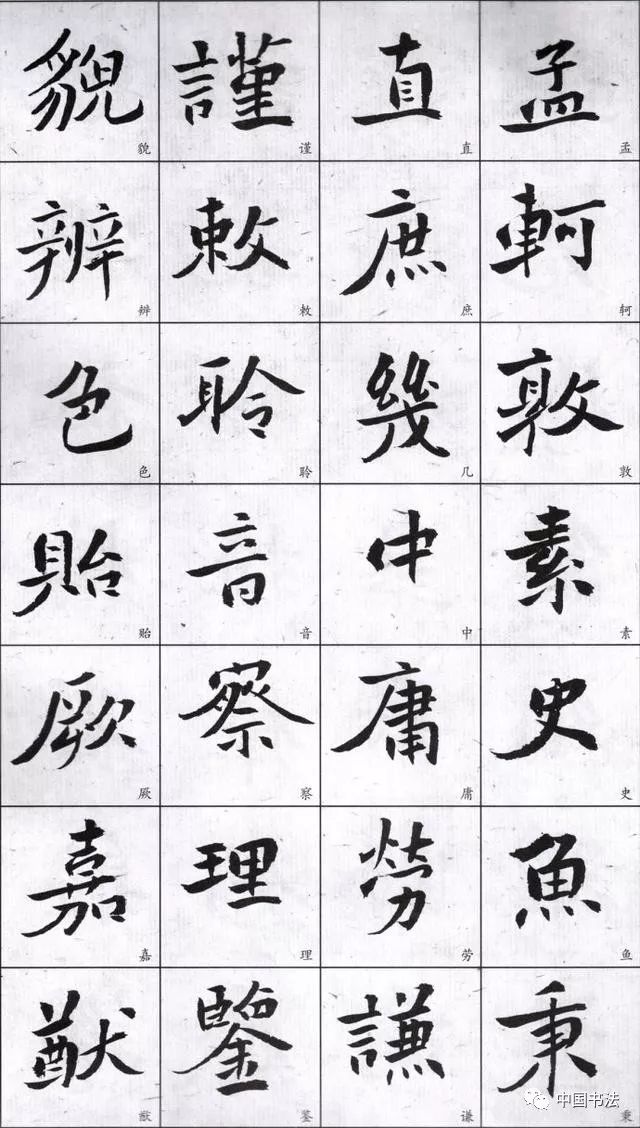 孟軻敦素史魚秉
直庶幾中庸勞謙
謹敕聆音察理鑒
貌辨色貽厥嘉猷
孟轲敦素史鱼秉
直庶几中庸劳谦
谨敕聆音察理鉴
貌辨色贻厥嘉猷
中国书法